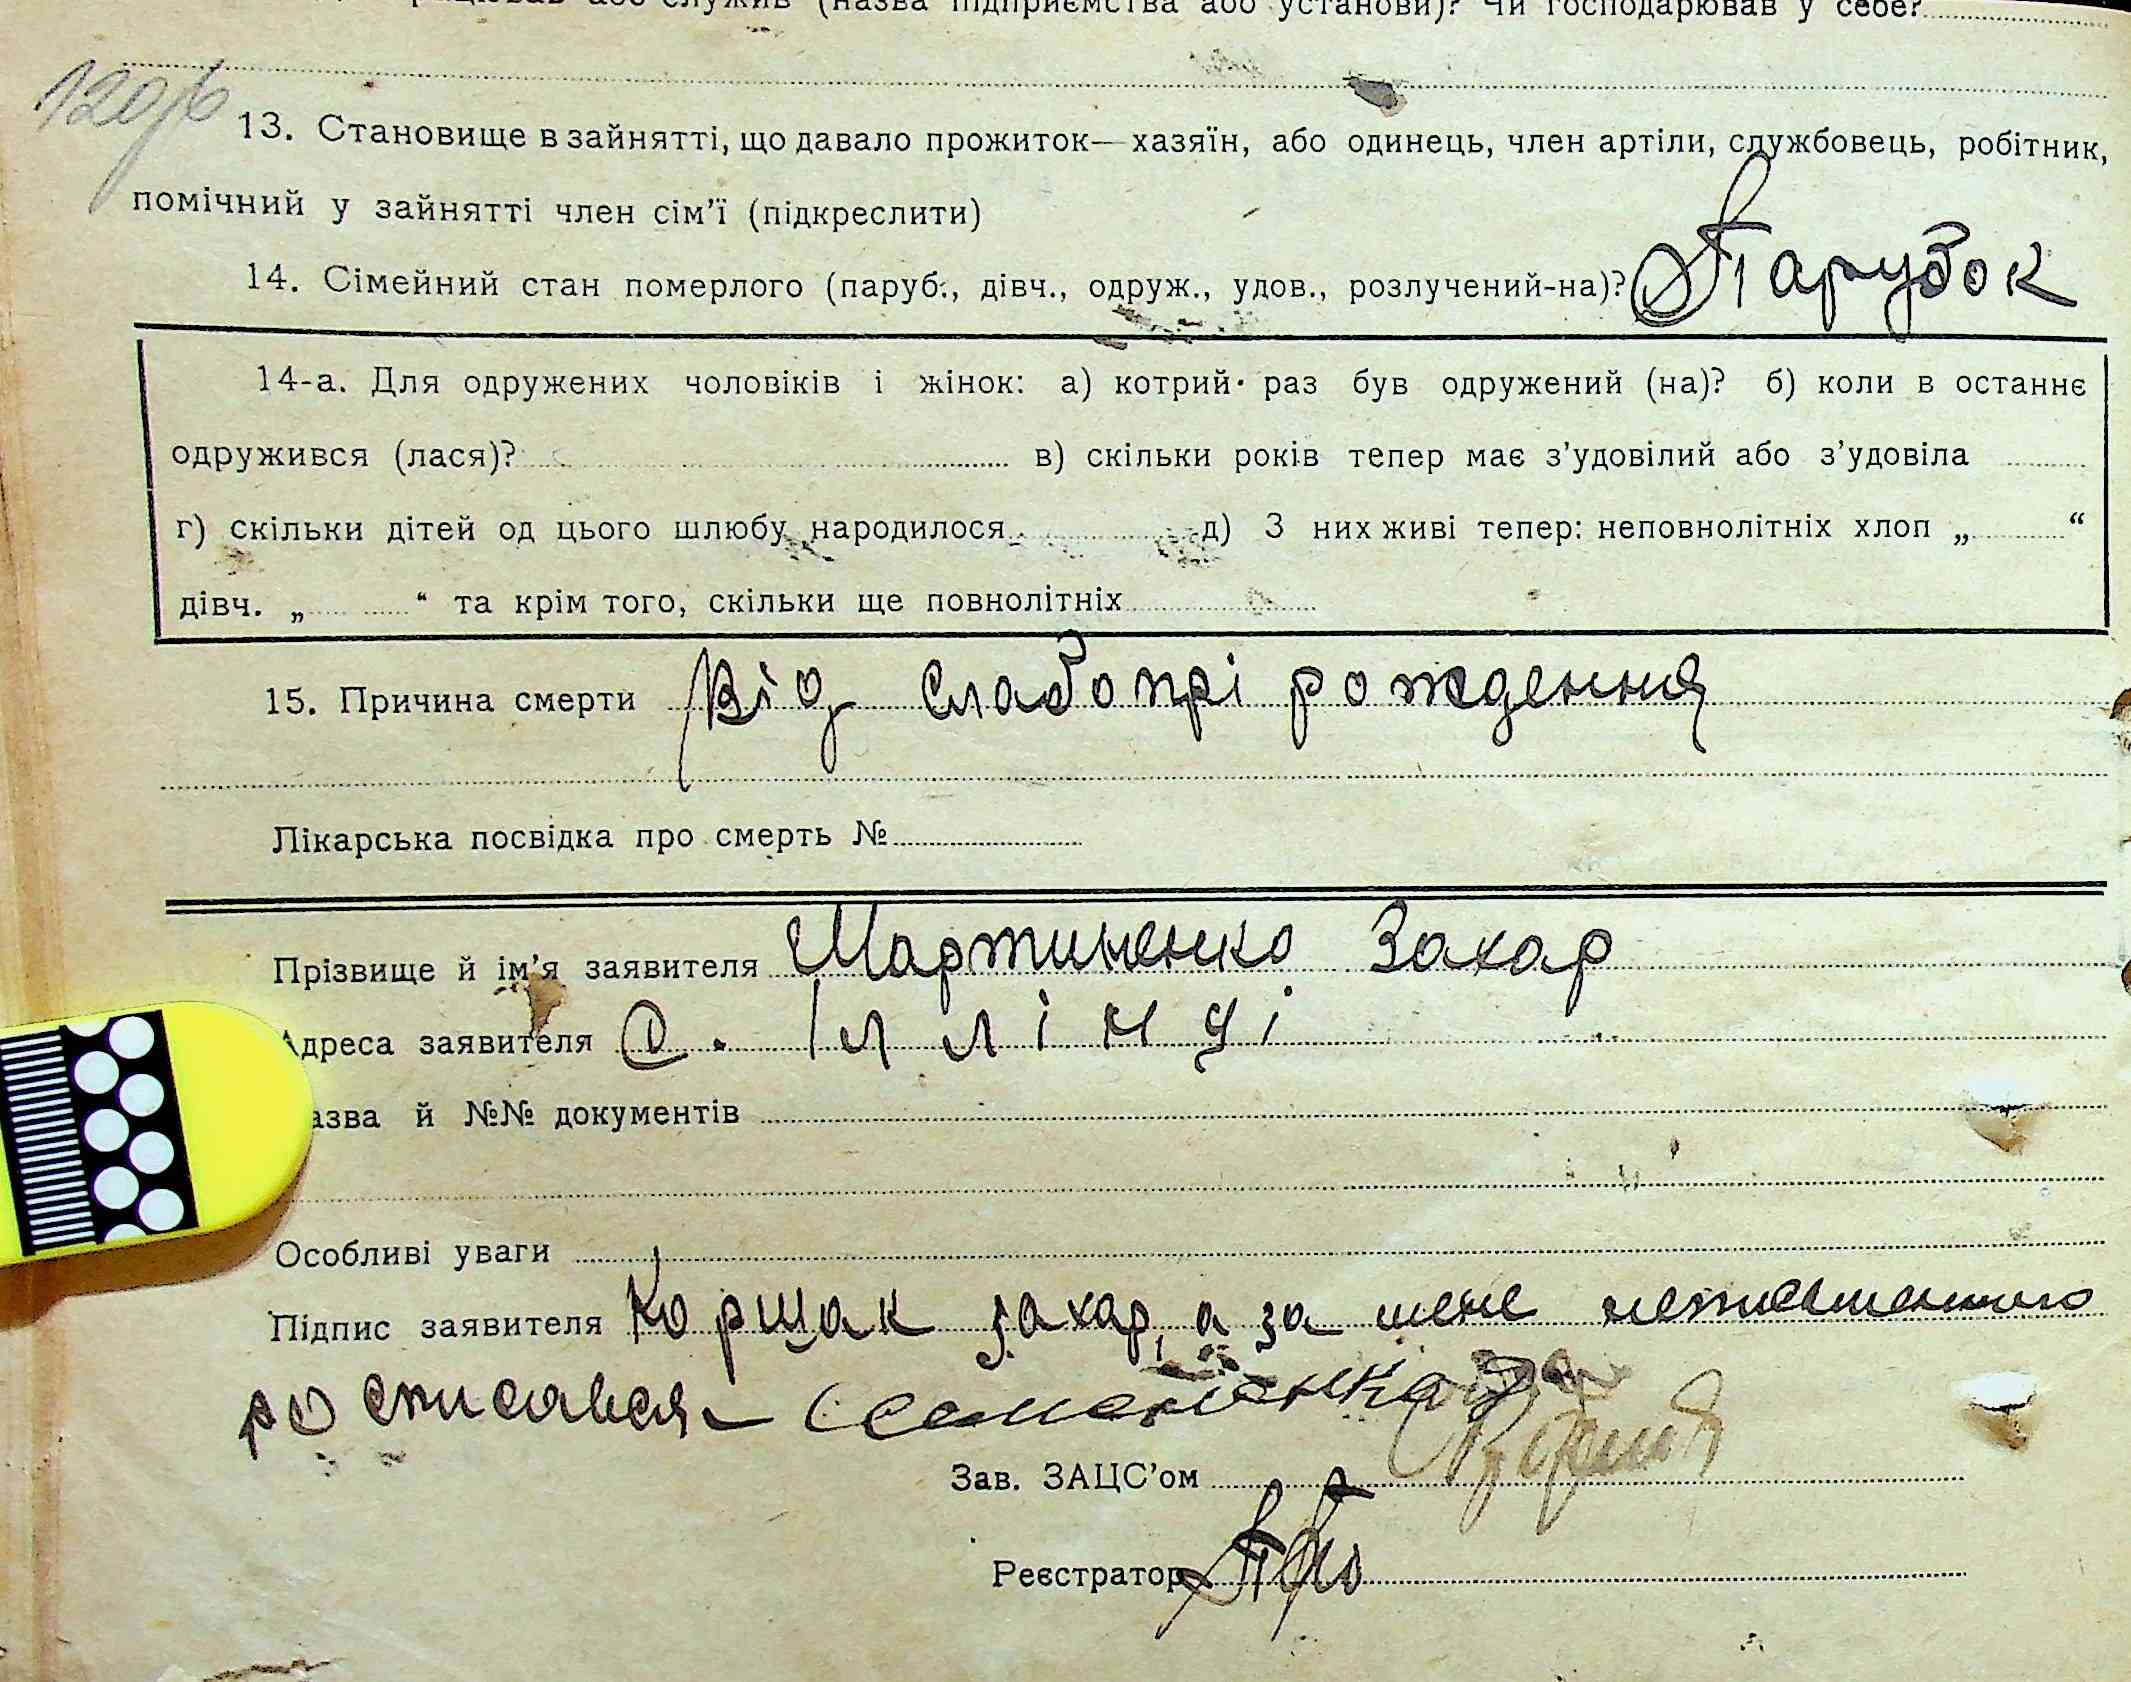 працював або служив (назва підприємства або установи)? Чи господарював у себе?
13. Становище в зайнятті, що давало прожиток— хазяїн, або одинець, член артіли, службовець, робітник,
помічний у зайнятті член сім'ї (підкреслити)
14. Сімейний стан померлого (паруб., дівч., одруж., удов., розлучений-на)? Парубок
14-а. Для одружених чоловіків і жінок: а) котрий раз був одружений (на)? б) коли в останнє
одружився (лася)? в) скільки років тепер має з'удовілий або з'удовіла
г) скільки дітей од цього шлюбу народилося д) З них живі тепер: неповнолітніх хлоп „ “
дівч. „ “ та крім того, скільки ще повнолітніх
15. Причина смерти Від слабопрі рождення
Лікарська посвідка про смерть №
Прізвище й ім'я заявителя Мартиненко Захар
Адреса заявителя с. Іллінці
азва й №№ документів
Особливі уваги
Підпис заявителя Коршак захар, а за мене неписьменного
росписався
Зав. ЗАЦС'ом
Реєстратор